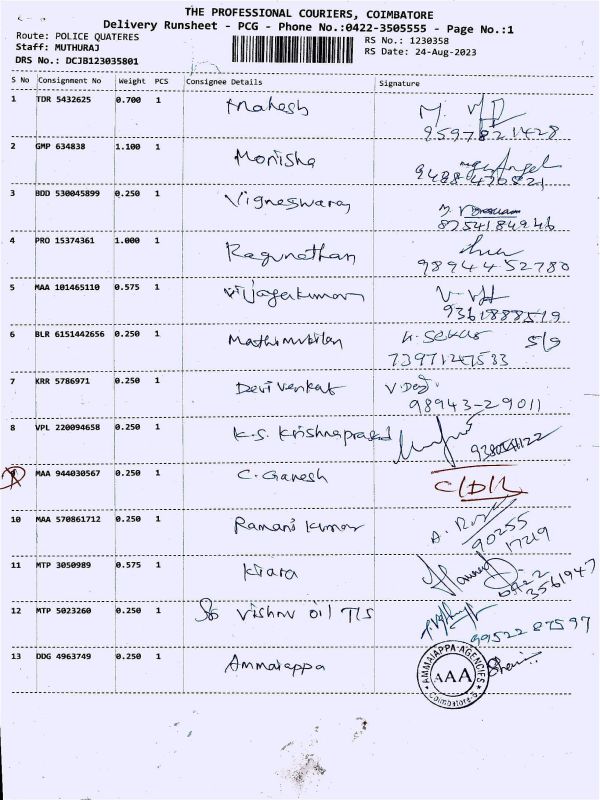 THE PROFESSIONAL COURIERS, COIMBATORE
Delivery Runsheet - PCG - Phone No.:0422-3505555 - Page No.:1
Route: POLICE QUATERES RS No.: 1230358
Staff: MUTHURAJ RS Date: 24-Aug-2023
DRS No.: DCJB123035801
S No Consignment No Weight PCS Consignee Details Signature
1 TDR 5432625 0.700 1 Mahesh M.
9597821428
2 GMP 634838 1.100 1 Monisha Angel
9488470521
3 BDD 530045899 0.250 1 Vigneswaran
8754184946
4 PRO 15374361 1.000 1 Ragunathan
9894452780
5 MAA 101465110 0.575 1 Vijayakumar
9361888519
6 BLR 6151442656 0.250 1 Mathimukilan K. Sekar S/9
7397127533
7 KRR 5786971 0.250 1 Devi Venkat V. Devi
98943-29011
8 VPL 220094658 0.250 1 K.S. Krishnaprasad
9 MAA 944030567 0.250 1 C. Ganesh C/D/L
10 MAA 570861712 0.250 1 Ramani Kumar A.
90255
17219
11 MTP 3050989 0.575 1 Kiara
0422
3561947
12 MTP 5023260 0.250 1 Vishnu oil TLS
99522 87597
13 DDG 4963749 0.250 1 Ammaiappa
AMMAIAPPA AGENCIES
AAA
Coimbatore-5